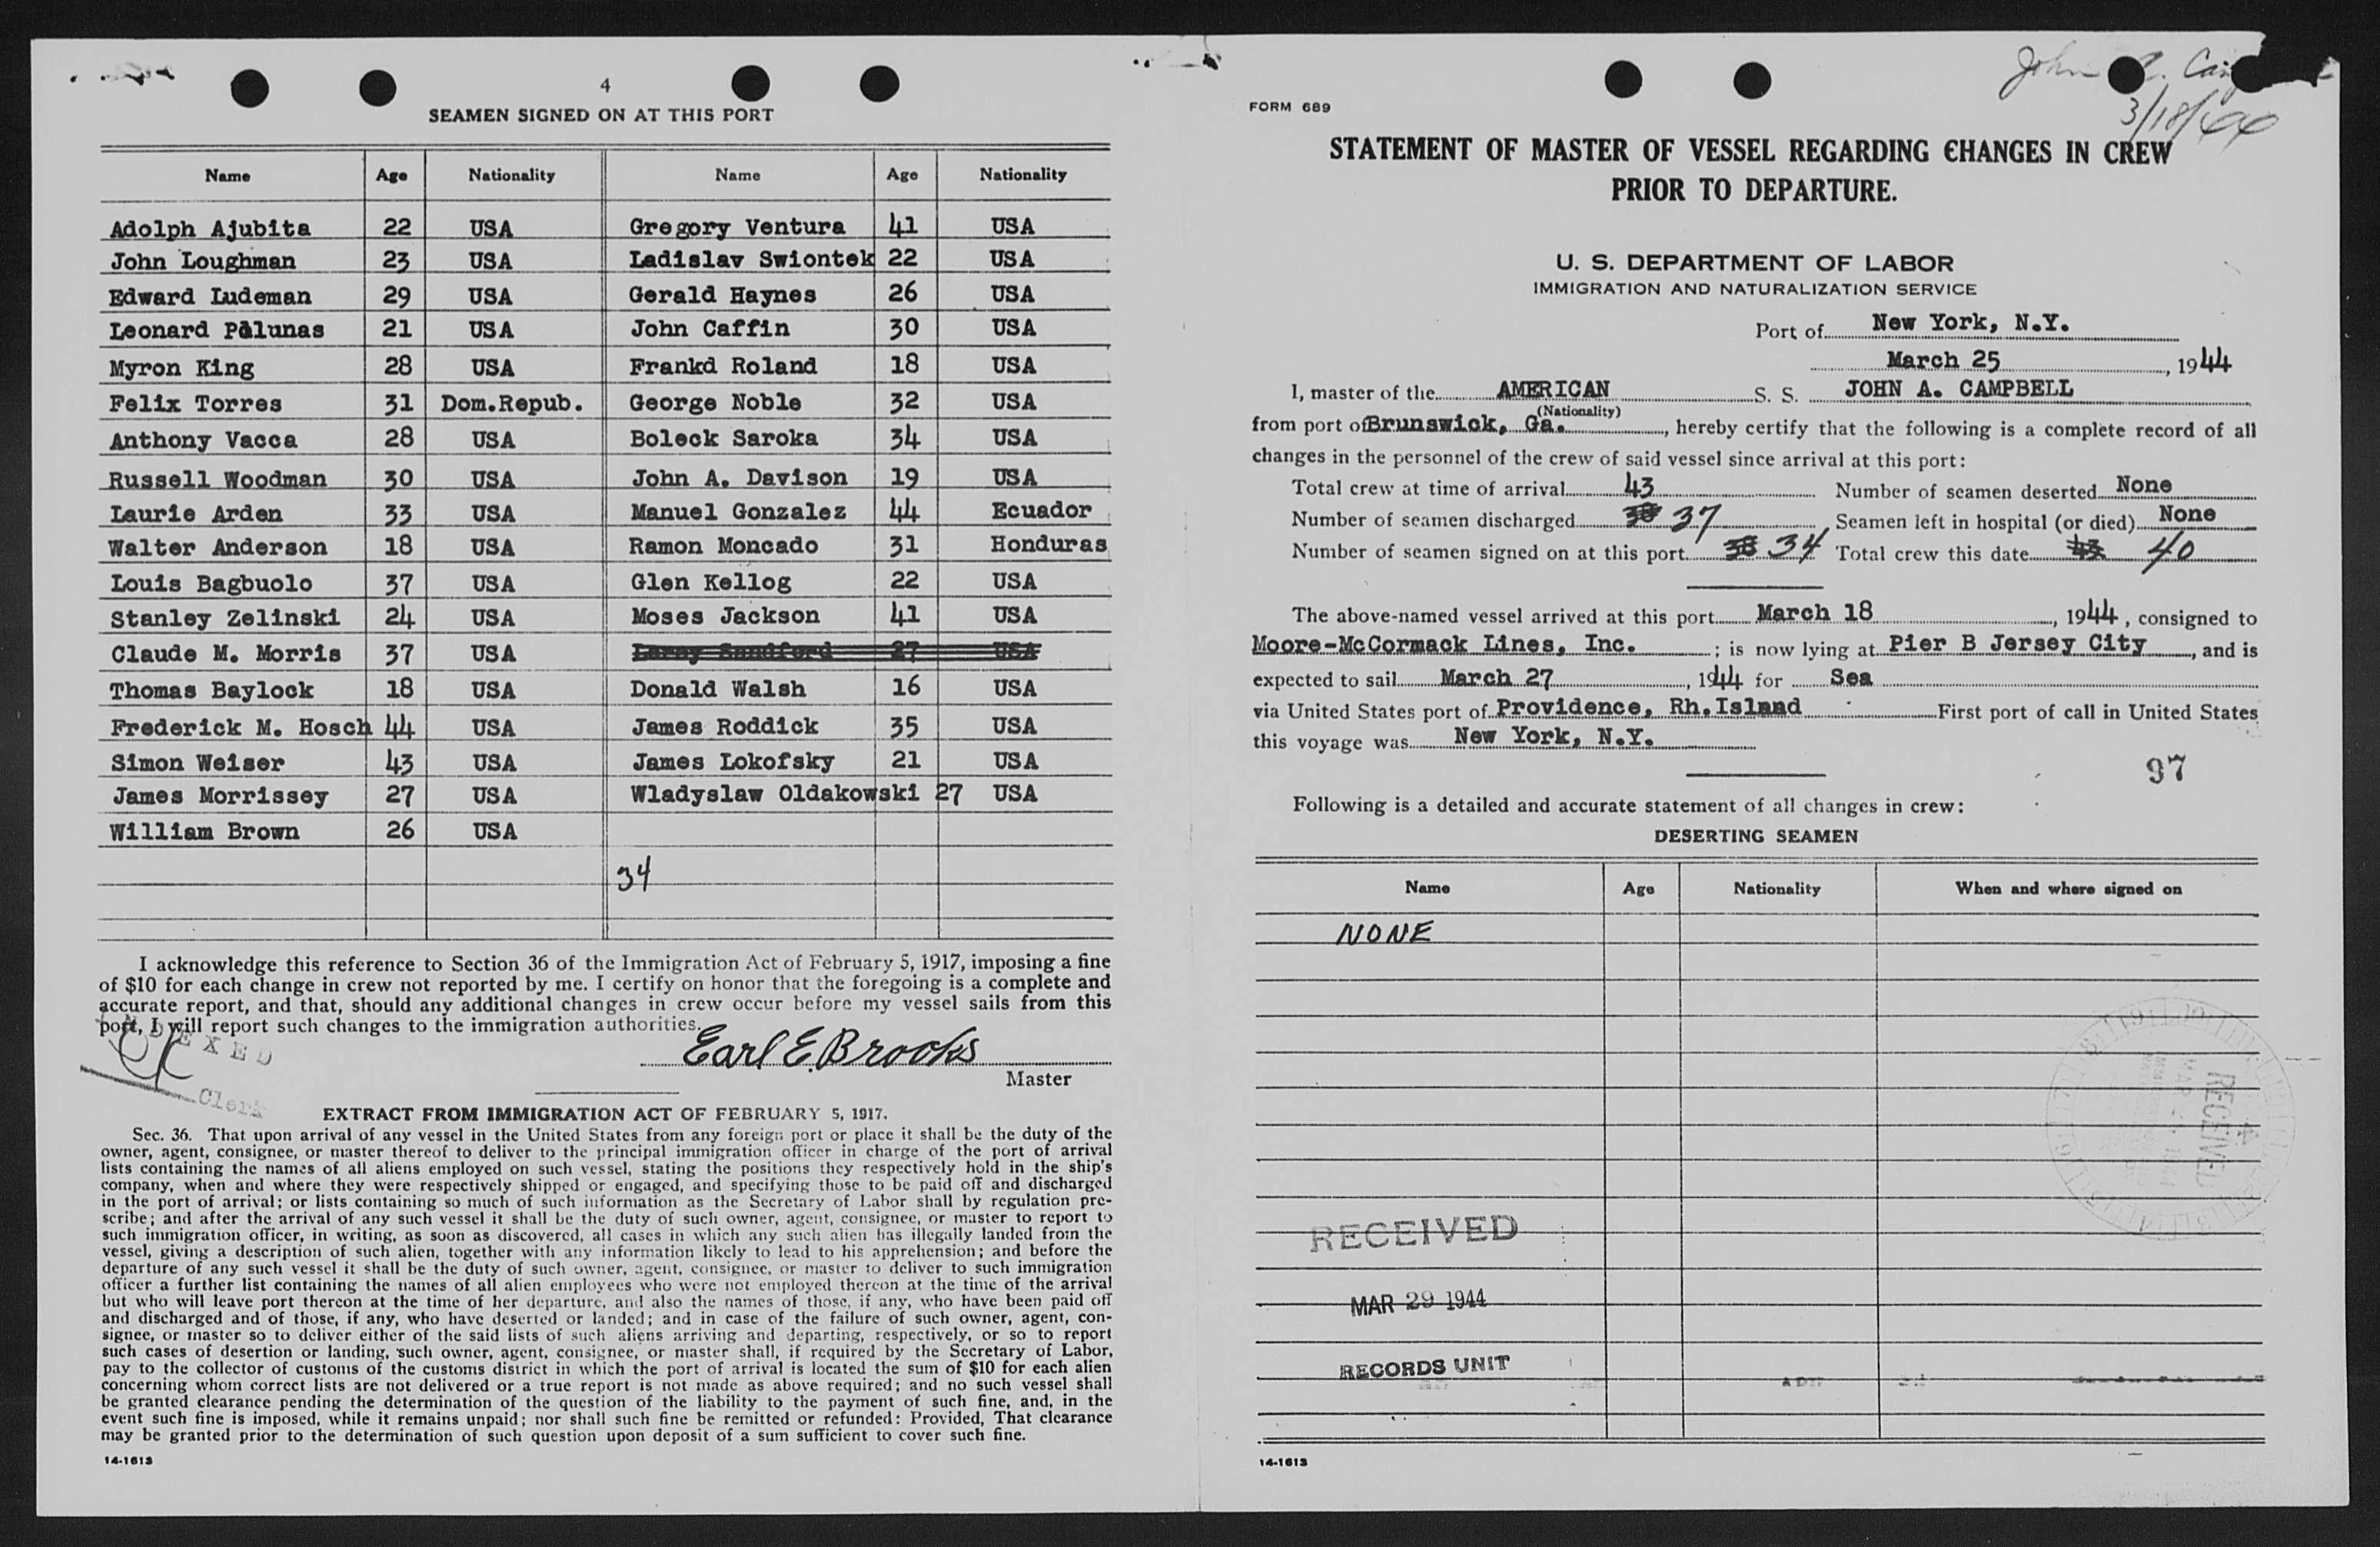 4
SEAMEN SIGNED ON AT THIS PORT
Name Age Nationality Name Age Nationality
Adolph Ajubita 22 USA Gregory Ventura 41 USA
John Loughman 23 USA Ladislav Swiontek 22 USA
Edward Ludeman 29 USA Gerald Haynes 26 USA
Leonard Palunas 21 USA John Caffin 30 USA
Myron King 28 USA Frankd Roland 18 USA
Felix Torres 31 Dom.Repub. George Noble 32 USA
Anthony Vacca 28 USA Boleck Saroka 34 USA
Russell Woodman 30 USA John A. Davison 19 USA
Laurie Arden 33 USA Manuel Gonzalez 44 Ecuador
Walter Anderson 18 USA Ramon Moncado 31 Honduras
Louis Bagbuolo 37 USA Glen Kellog 22 USA
Stanley Zelinski 24 USA Moses Jackson 41 USA
Claude M. Morris 37 USA Leroy Sandford 27 USA
Thomas Baylock 18 USA Donald Walsh 16 USA
Frederick M. Hosch 44 USA James Roddick 35 USA
Simon Weiser 43 USA James Lokofsky 21 USA
James Morrissey 27 USA Wladyslaw Oldakowski 27 USA
William Brown 26 USA
34
I acknowledge this reference to Section 36 of the Immigration Act of February 5, 1917, imposing a fine
of $10 for each change in crew not reported by me. I certify on honor that the foregoing is a complete and
accurate report, and that, should any additional changes in crew occur before my vessel sails from this
port, I will report such changes to the immigration authorities.
INDEXED
Clerk
Earl E. Brooks
Master
EXTRACT FROM IMMIGRATION ACT OF FEBRUARY 5, 1917.
Sec. 36. That upon arrival of any vessel in the United States from any foreign port or place it shall be the duty of the
owner, agent, consignee, or master thereof to deliver to the principal immigration officer in charge of the port of arrival
lists containing the names of all aliens employed on such vessel, stating the positions they respectively hold in the ship's
company, when and where they were respectively shipped or engaged, and specifying those to be paid off and discharged
in the port of arrival; or lists containing so much of such information as the Secretary of Labor shall by regulation pre-
scribe; and after the arrival of any such vessel it shall be the duty of such owner, agent, consignee, or master to report to
such immigration officer, in writing, as soon as discovered, all cases in which any such alien has illegally landed from the
vessel, giving a description of such alien, together with any information likely to lead to his apprehension; and before the
departure of any such vessel it shall be the duty of such owner, agent, consignee, or master to deliver to such immigration
officer a further list containing the names of all alien employees who were not employed thereon at the time of the arrival
but who will leave port thereon at the time of her departure, and also the names of those, if any, who have been paid off
and discharged and of those, if any, who have deserted or landed; and in case of the failure of such owner, agent, con-
signee, or master so to deliver either of the said lists of such aliens arriving and departing, respectively, or so to report
such cases of desertion or landing, such owner, agent, consignee, or master shall, if required by the Secretary of Labor,
pay to the collector of customs of the customs district in which the port of arrival is located the sum of $10 for each alien
concerning whom correct lists are not delivered or a true report is not made as above required; and no such vessel shall
be granted clearance pending the determination of the question of the liability to the payment of such fine, and, in the
event such fine is imposed, while it remains unpaid; nor shall such fine be remitted or refunded: Provided, That clearance
may be granted prior to the determination of such question upon deposit of a sum sufficient to cover such fine.
14-1613
John
3/18/44
FORM 689
STATEMENT OF MASTER OF VESSEL REGARDING CHANGES IN CREW
PRIOR TO DEPARTURE.
U. S. DEPARTMENT OF LABOR
IMMIGRATION AND NATURALIZATION SERVICE
Port of New York, N.Y.
March 25, 1944
I, master of the AMERICAN S. S. JOHN A. CAMPBELL
(Nationality)
from port of Brunswick, Ga., hereby certify that the following is a complete record of all
changes in the personnel of the crew of said vessel since arrival at this port:
Total crew at time of arrival 43 Number of seamen deserted None
Number of seamen discharged 38 37 Seamen left in hospital (or died) None
Number of seamen signed on at this port 38 34 Total crew this date 43 40
The above-named vessel arrived at this port March 18, 1944, consigned to
Moore-McCormack Lines, Inc.; is now lying at Pier B Jersey City, and is
expected to sail March 27, 1944 for Sea
via United States port of Providence, Rh.Island First port of call in United States
this voyage was New York, N.Y.
37
Following is a detailed and accurate statement of all changes in crew:
DESERTING SEAMEN
Name Age Nationality When and where signed on
NONE
RECEIVED
RECEIVED
MAR 29 1944
RECORDS UNIT
14-1613